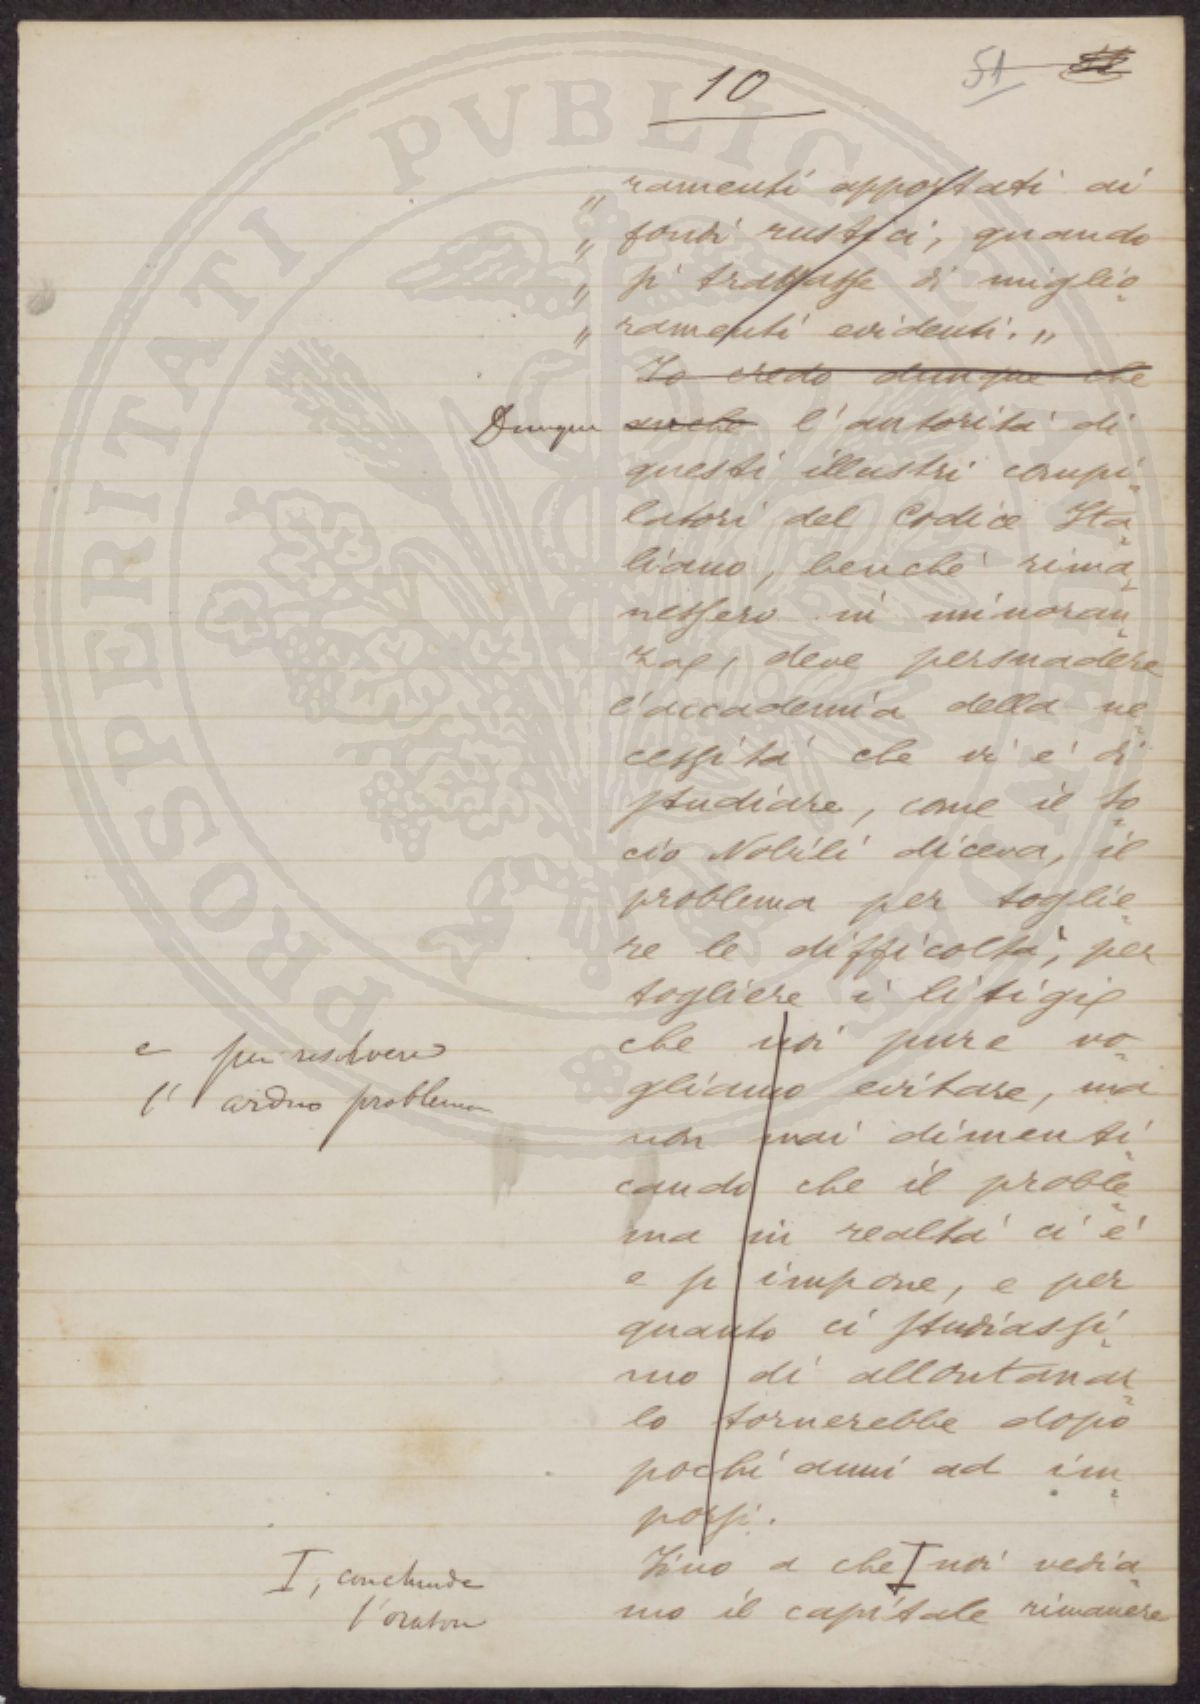 10
51
„ ramenti apportati ai
„ fondi rustici, quando
„ si trattasse di miglio-
„ ramenti evidenti. „
Io credo dunque che
Dunque anche l'autorità di
questi illustri compi-
latori del Codice Ita-
liano, benchè rima-
nessero in minoran-
za, deve persuadere
l'accademia della ne-
cessità che vi è di
studiare, come il so-
cio Nobili diceva, il
problema per toglie-
re le difficoltà, per
togliere i litigi
che noi pure vo-
e per risolvere
gliamo evitare, ma
l'arduo problema
non mai dimenti-
cando che il proble-
ma in realtà ci è
e si impone, e per
quanto ci studiassi-
mo di allontanar-
lo tornerebbe dopo
pochi anni ad im-
porsi.
Fino a che noi vedia-
I, conchiude
mo il capitale rimanere
l'oratore
PROSPERITATI PVBLICAE